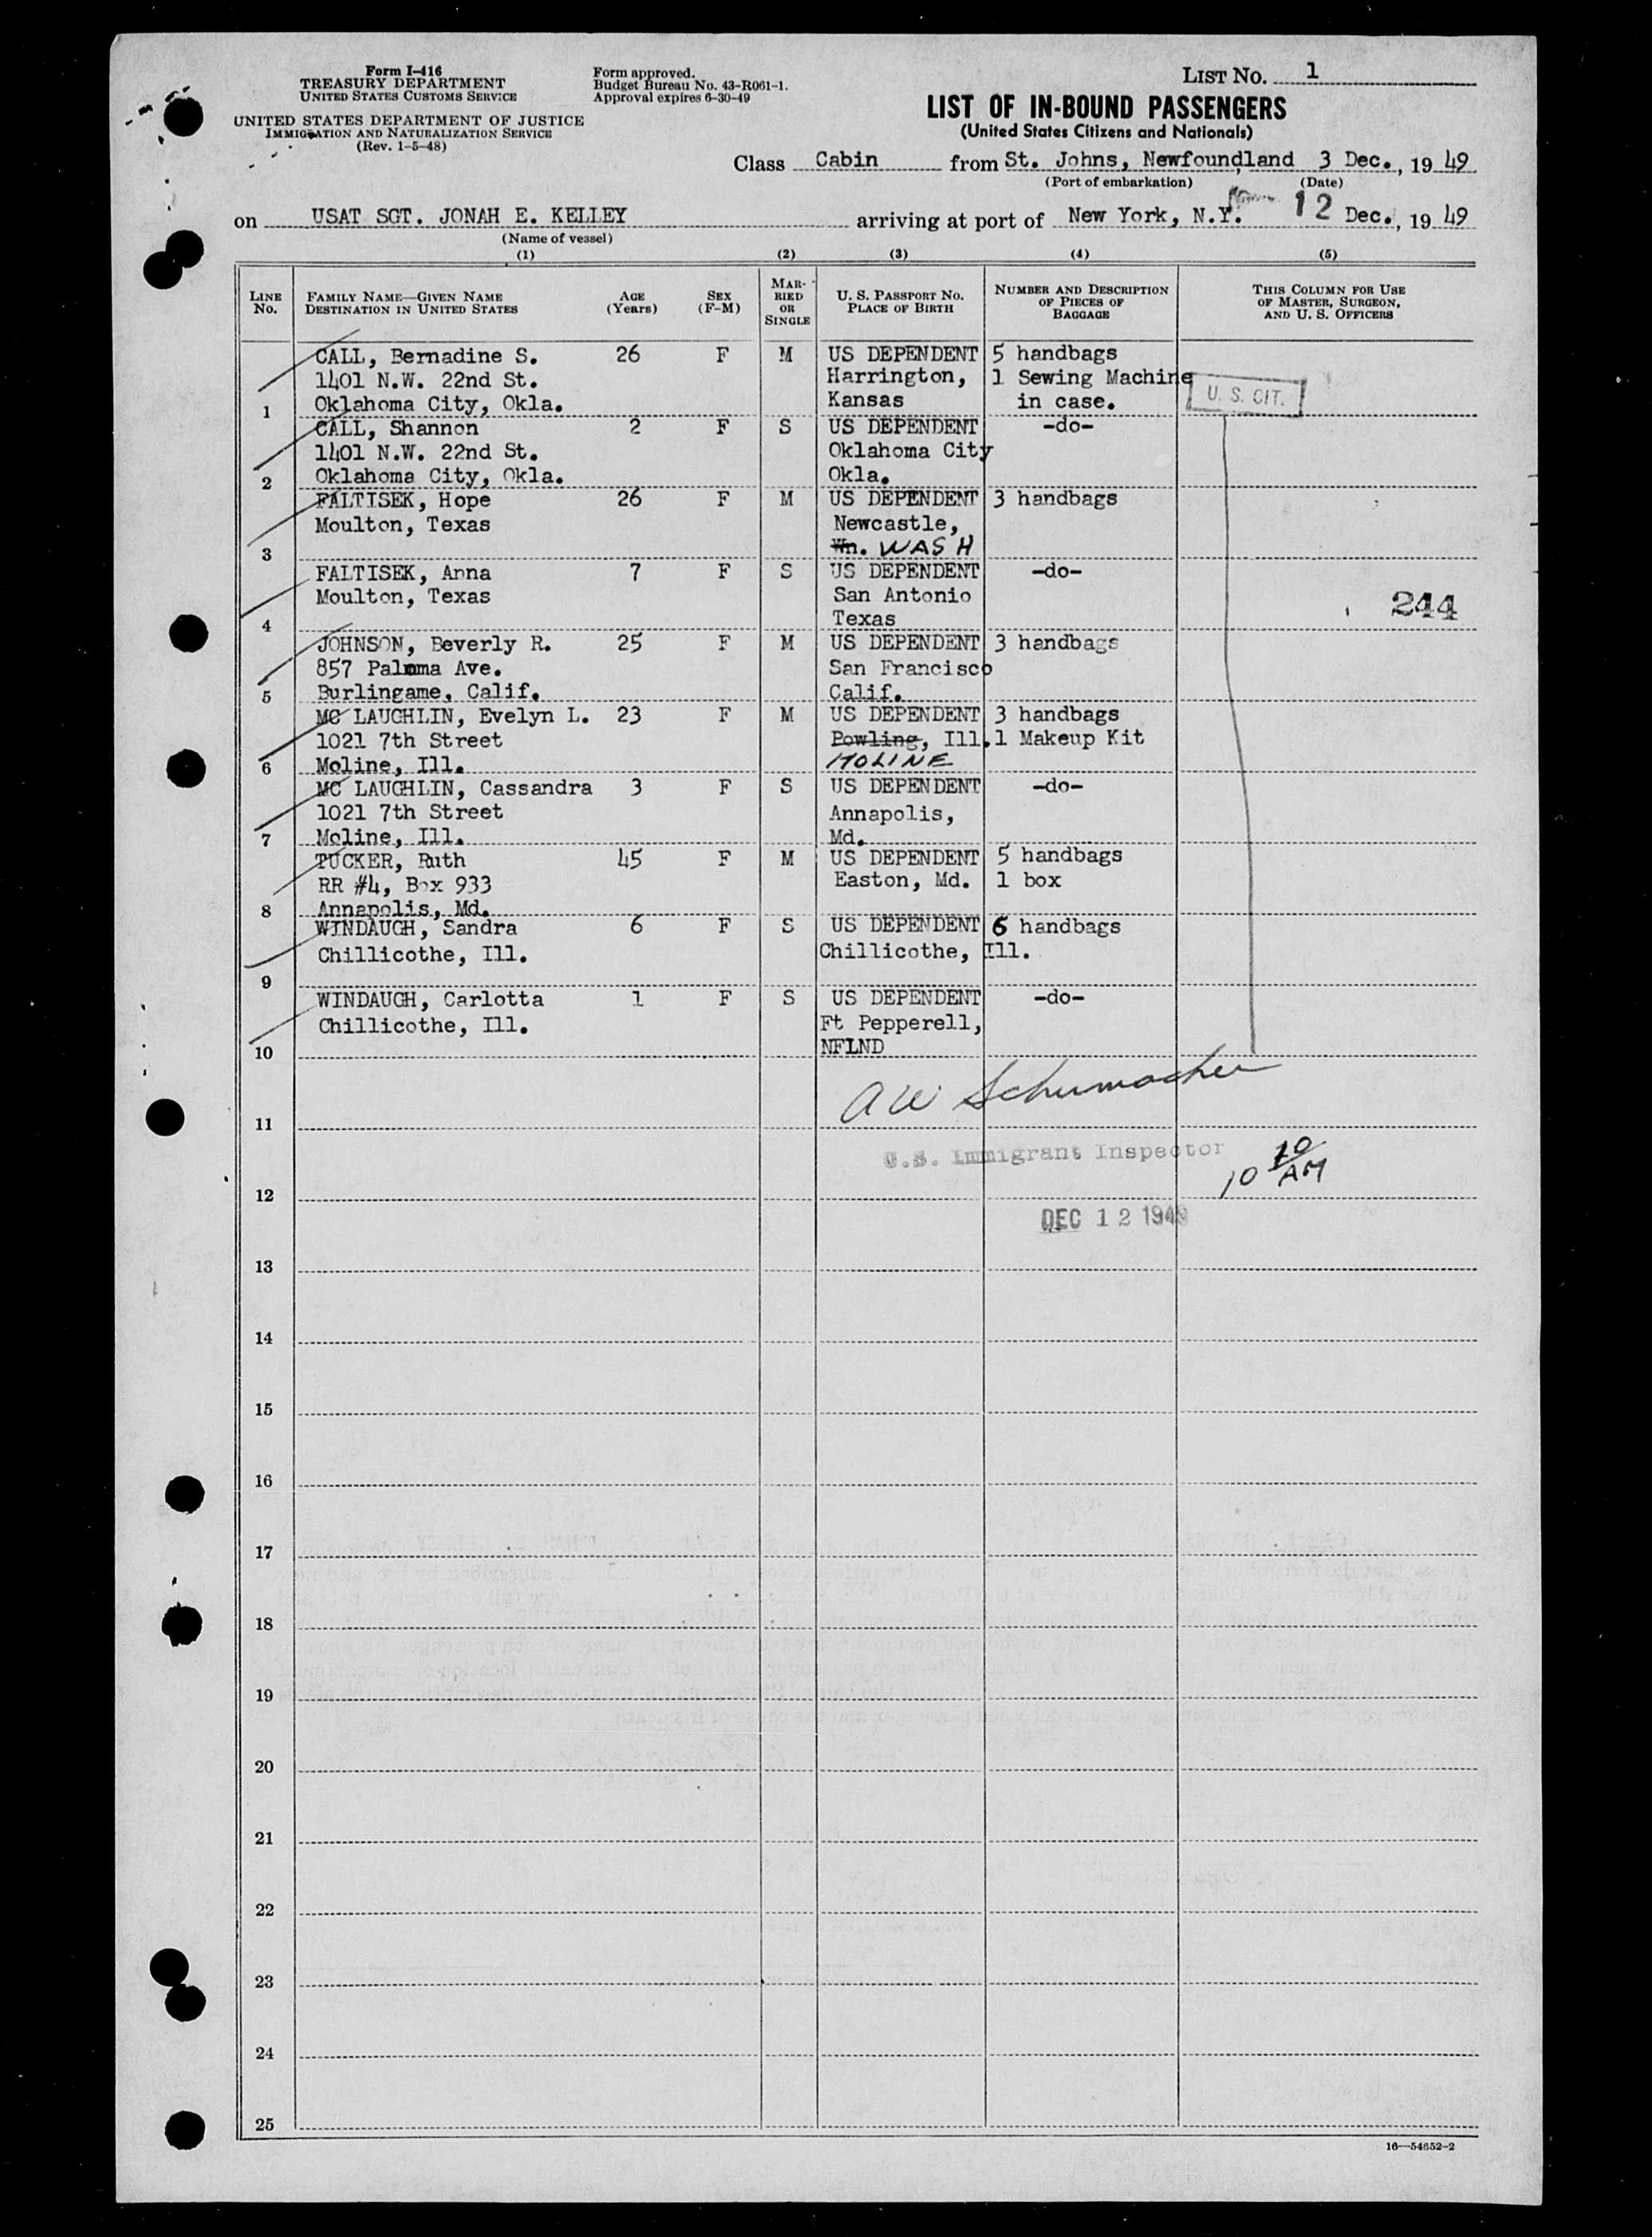 Form I-416
TREASURY DEPARTMENT
UNITED STATES CUSTOMS SERVICE
UNITED STATES DEPARTMENT OF JUSTICE
IMMIGRATION AND NATURALIZATION SERVICE
(Rev. 1-5-48)
Form approved.
Budget Bureau No. 43-R061-1.
Approval expires 6-30-49
LIST NO. 1
LIST OF IN-BOUND PASSENGERS
(United States Citizens and Nationals)
Class Cabin from St. Johns, Newfoundland 3 Dec., 19 49
(Port of embarkation) (Date)
on USAT SGT. JONAH E. KELLEY arriving at port of New York, N.Y. 12 Dec., 19 49
(Name of vessel)
(1) (2) (3) (4) (5)
LINE NO.
FAMILY NAME—GIVEN NAME
DESTINATION IN UNITED STATES
AGE (Years)
SEX (F-M)
MARRIED OR SINGLE
U. S. PASSPORT NO.
PLACE OF BIRTH
NUMBER AND DESCRIPTION OF PIECES OF BAGGAGE
THIS COLUMN FOR USE OF MASTER, SURGEON, AND U. S. OFFICERS
CALL, Bernadine S. 26 F M US DEPENDENT 5 handbags
1401 N.W. 22nd St. Harrington, 1 Sewing Machine
1 Oklahoma City, Okla. Kansas in case. U. S. CIT.
CALL, Shannon 2 F S US DEPENDENT -do-
1401 N.W. 22nd St. Oklahoma City
2 Oklahoma City, Okla. Okla.
FALTISEK, Hope 26 F M US DEPENDENT 3 handbags
Moulton, Texas Newcastle,
3 Wn. WASH
FALTISEK, Anna 7 F S US DEPENDENT -do-
Moulton, Texas San Antonio 244
4 Texas
JOHNSON, Beverly R. 25 F M US DEPENDENT 3 handbags
857 Paloma Ave. San Francisco
5 Burlingame, Calif. Calif.
MC LAUGHLIN, Evelyn L. 23 F M US DEPENDENT 3 handbags
1021 7th Street Powling, Ill. 1 Makeup Kit
6 Moline, Ill. MOLINE
MC LAUGHLIN, Cassandra 3 F S US DEPENDENT -do-
1021 7th Street Annapolis,
7 Moline, Ill. Md.
TUCKER, Ruth 45 F M US DEPENDENT 5 handbags
RR #4, Box 933 Easton, Md. 1 box
8 Annapolis, Md.
WINDAUGH, Sandra 6 F S US DEPENDENT 6 handbags
Chillicothe, Ill. Chillicothe, Ill.
9
WINDAUGH, Carlotta 1 F S US DEPENDENT -do-
Chillicothe, Ill. Ft Pepperell,
10 NFLND
A W Schumacher
11
U.S. Immigrant Inspector
10 10 AM
12
DEC 12 1949
13
14
15
16
17
18
19
20
21
22
23
24
25
16—54652-2